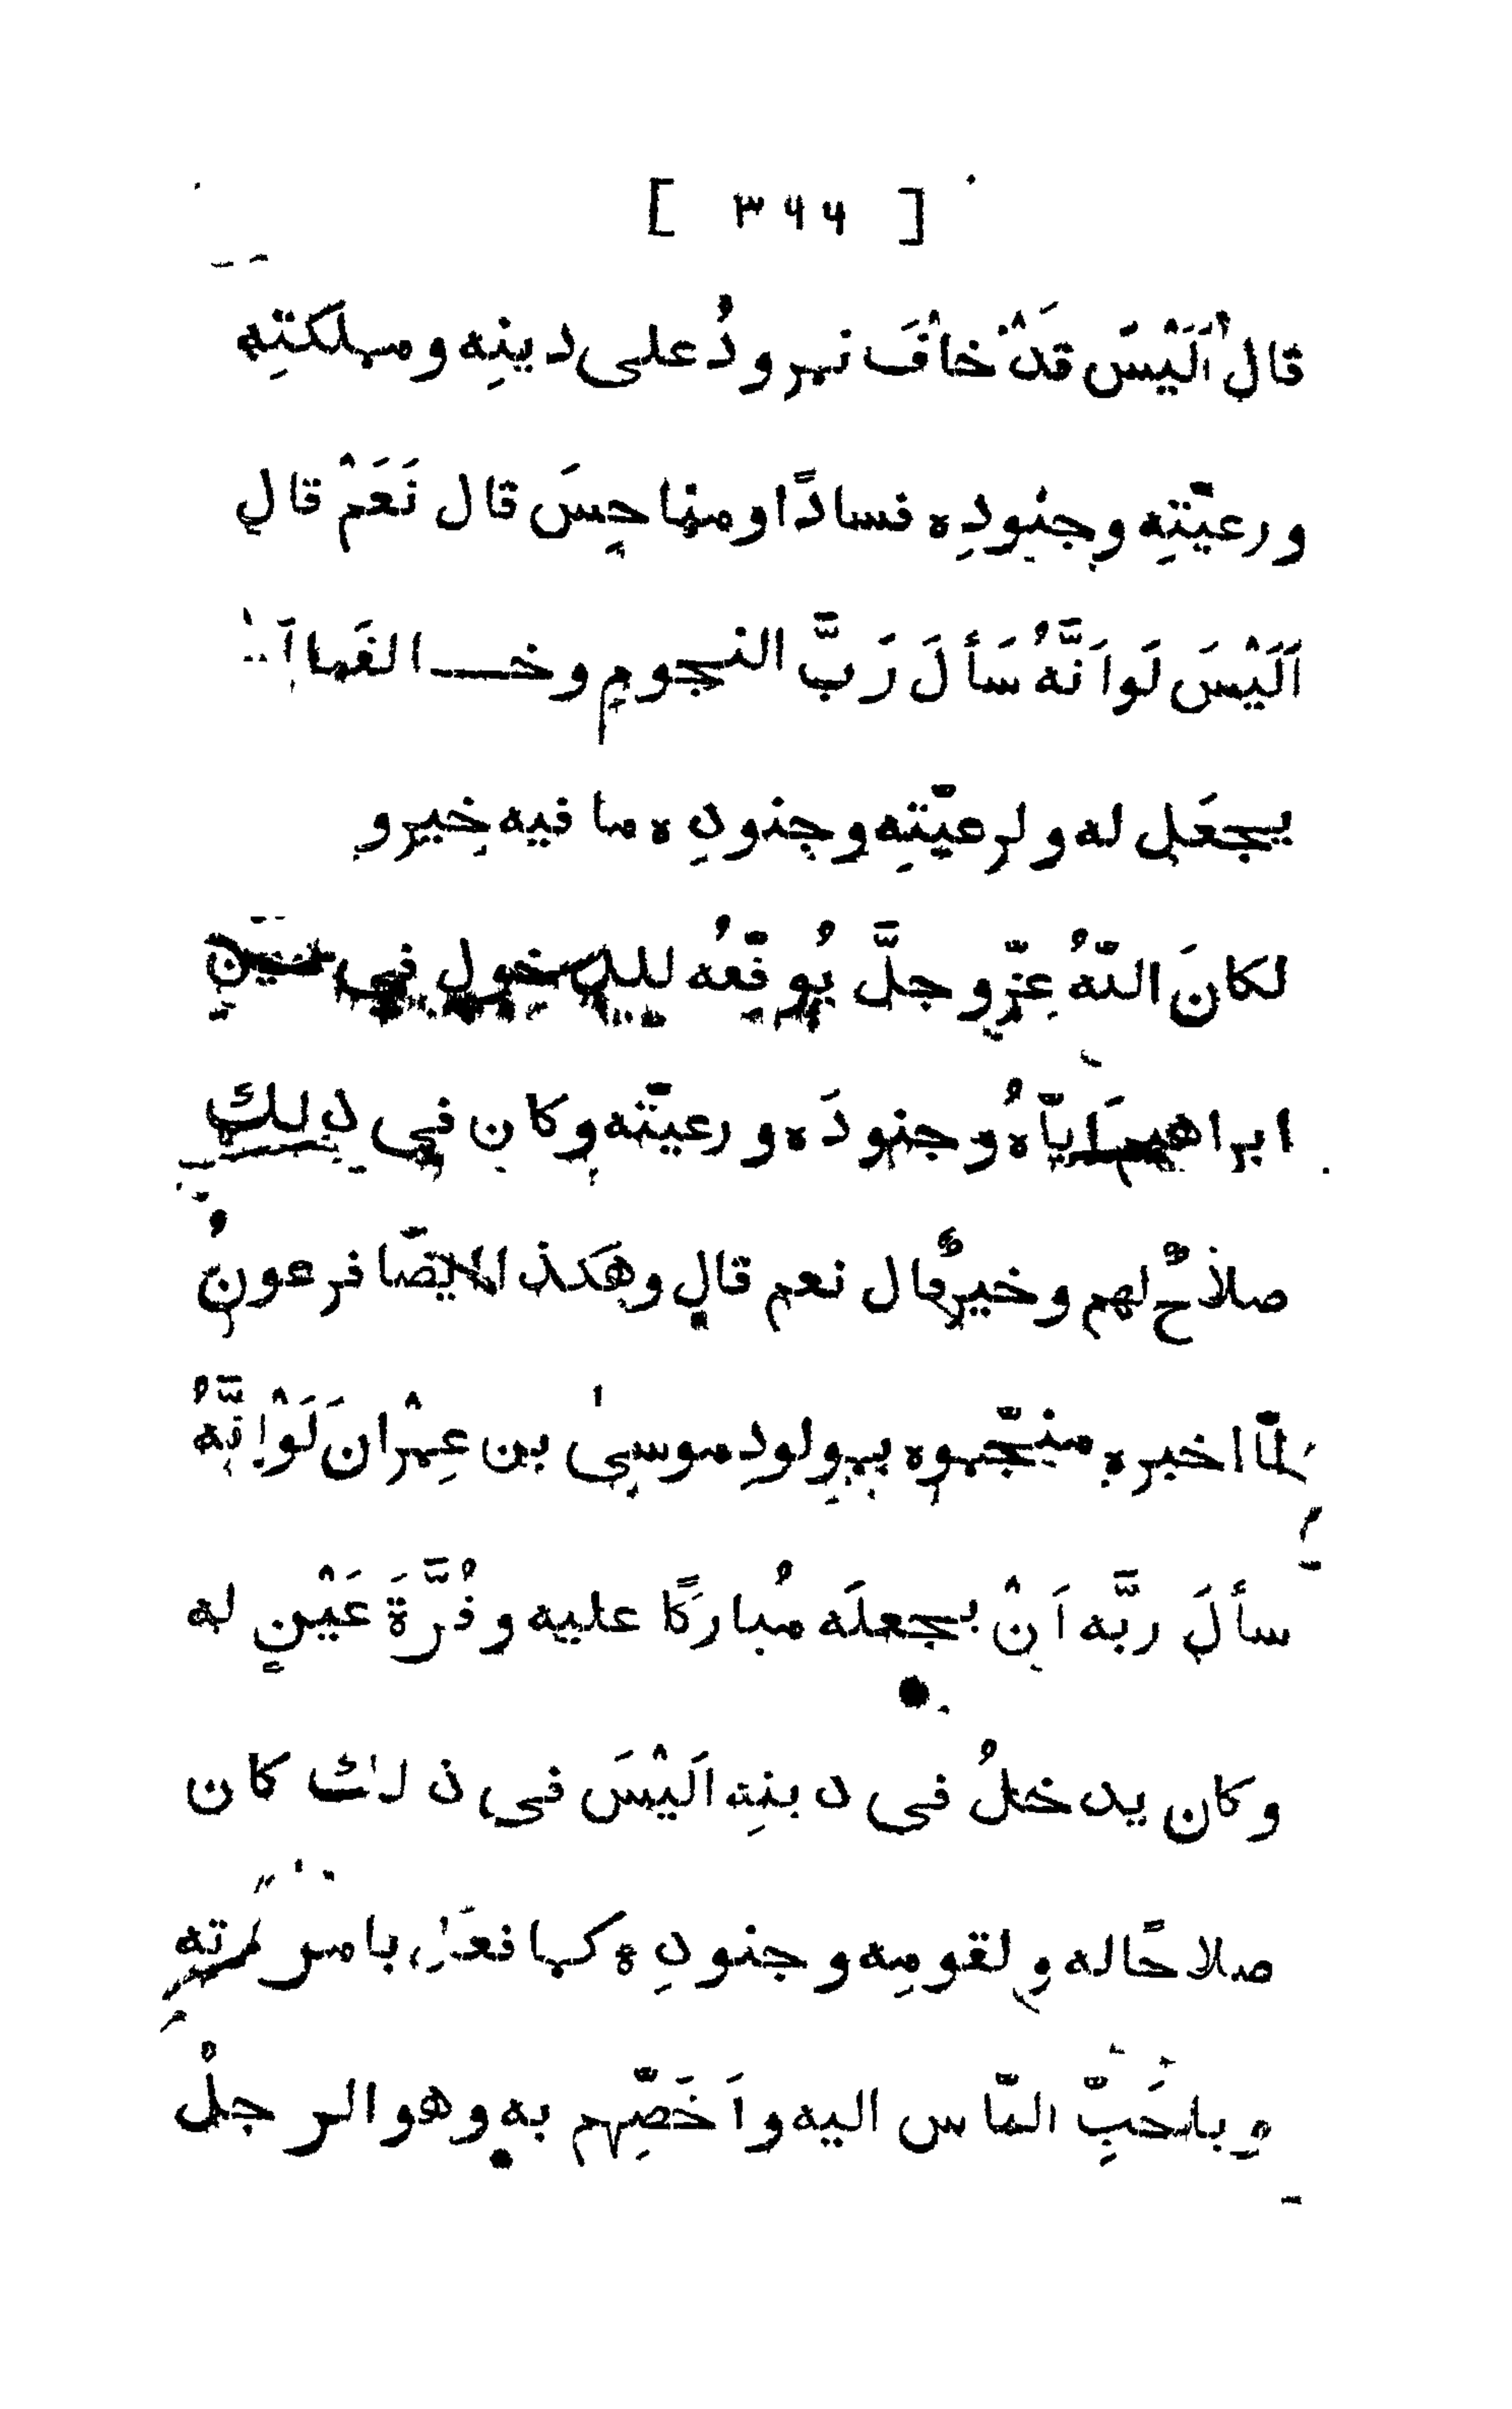 [ ٣٩٤ ]
قال اَلَيْسَ قَدْ خافَ نمرودُ على دينِه ومملكتِه
ورعيّتِه وجنودِه فسادًا ومنها حِسَ قال نَعَمْ قال
اَلَيْسَ لَو اَنَّهُ سَأَلَ رَبَّ النجومِ
يجعَل له ولرعيّتِه وجنودِه ما فيه خير و
لكانَ اللّهُ عزّ وجلَّ يُوفِّقُه للدخول في
ابراهيم ايّاهُ وجنودَه ورعيّته وكان في ذلك
صلاحٌ لهم وخيرٌ قال نعم قال وهكذا ايضًا فرعونُ
لمّا اخبره منجّموه بمولودِ موسىٰ بن عِمْرانَ لَوْ انَّهُ
سألَ ربَّه اَنْ يجعلَه مُبارَكًا عليه وقُرَّةَ عَيْنٍ له
وكان يدخلُ في دينِه اَلَيْسَ في ذلك كان
صلاحًا له ولقومِه وجنودِه كما فعَل بامرٔتِه
وباحَبِّ النّاس اليه واَخَصِّهم به وهو الرجلُ